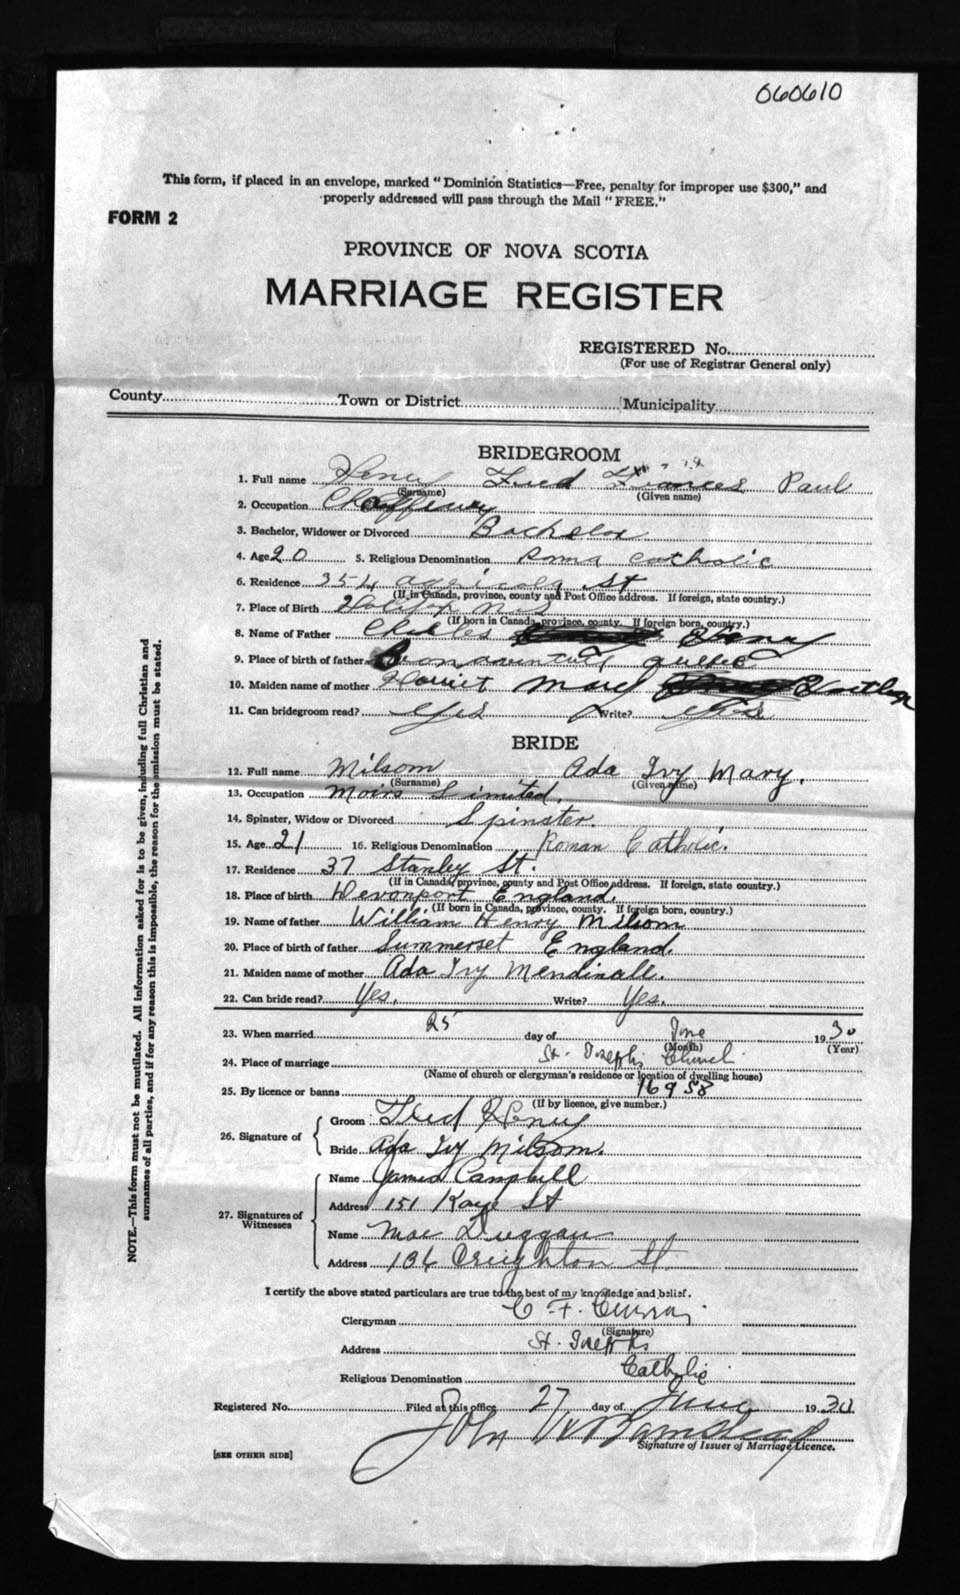 060610
This form, if placed in an envelope, marked "Dominion Statistics—Free, penalty for improper use $300," and
properly addressed will pass through the Mail "FREE."
FORM 2
PROVINCE OF NOVA SCOTIA
MARRIAGE REGISTER
REGISTERED No.
(For use of Registrar General only)
County Town or District Municipality
BRIDEGROOM
1. Full name Fred Frances Paul
(Surname) (Given name)
2. Occupation
3. Bachelor, Widower or Divorced Bachelor
4. Age 20 5. Religious Denomination Roma Catholic
6. Residence 354 Agricola St
(If in Canada, province, county and Post Office address. If foreign, state country.)
7. Place of Birth Halifax
(If born in Canada, province, county. If foreign born, country.)
8. Name of Father Charles
9. Place of birth of father Quebec
10. Maiden name of mother Harriet Mary
11. Can bridegroom read? Yes Write? Yes
BRIDE
12. Full name Milsom Ada Ivy Mary.
(Surname) (Given name)
13. Occupation Moirs Limited.
14. Spinster, Widow or Divorced Spinster.
15. Age 21 16. Religious Denomination Roman Catholic.
17. Residence 37 Stanley St.
(If in Canada, province, county and Post Office address. If foreign, state country.)
18. Place of birth Devonport England.
(If born in Canada, province, county. If foreign born, country.)
19. Name of father William Henry Milsom
20. Place of birth of father Summerset England.
21. Maiden name of mother Ada Ivy Mendinall.
22. Can bride read? Yes. Write? Yes.
23. When married 25 day of June 1930
(Month) (Year)
24. Place of marriage St. Josephs Church
(Name of church or clergyman's residence or location of dwelling house)
25. By licence or banns 16958
(If by licence, give number.)
26. Signature of
Groom Fred
Bride Ada Ivy Milsom.
27. Signatures of Witnesses
Name James Campbell
Address 151 Kaye St
Name Mae Duggan
Address 136 Creighton St.
I certify the above stated particulars are true to the best of my knowledge and belief.
Clergyman C F. Curran
(Signature)
Address St. Josephs
Religious Denomination Catholic
Registered No. Filed at this office 27 day of June 1930
John
Signature of Issuer of Marriage Licence.
[SEE OTHER SIDE]
NOTE.—This form must not be mutilated. All information asked for is to be given, including full Christian and
surnames of all parties, and if for any reason this is impossible, the reason for the omission must be stated.